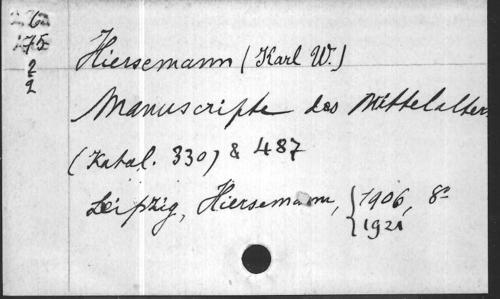 26
175
2
2
Hiersemann (Karl W.)
Manuscripte des Mittelalters
(Katal. 330) & 487
Leipzig, Hiersemann, {1906, 8º
1921